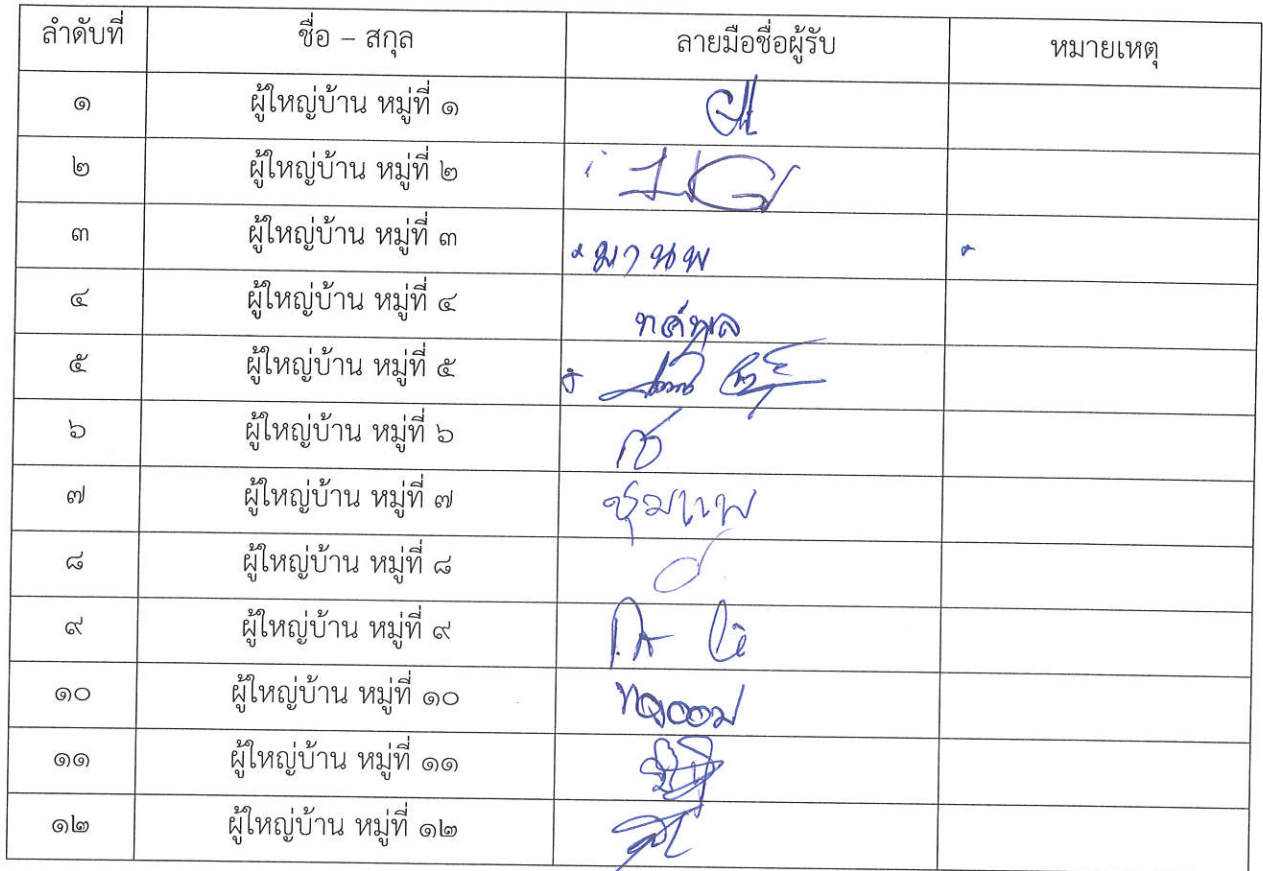 ลำดับที่ ชื่อ – สกุล ลายมือชื่อผู้รับ หมายเหตุ
๑ ผู้ใหญ่บ้าน หมู่ที่ ๑
๒ ผู้ใหญ่บ้าน หมู่ที่ ๒
๓ ผู้ใหญ่บ้าน หมู่ที่ ๓ มานพ
๔ ผู้ใหญ่บ้าน หมู่ที่ ๔
๕ ผู้ใหญ่บ้าน หมู่ที่ ๕
๖ ผู้ใหญ่บ้าน หมู่ที่ ๖
๗ ผู้ใหญ่บ้าน หมู่ที่ ๗ ชุมแพ
๘ ผู้ใหญ่บ้าน หมู่ที่ ๘
๙ ผู้ใหญ่บ้าน หมู่ที่ ๙
๑๐ ผู้ใหญ่บ้าน หมู่ที่ ๑๐
๑๑ ผู้ใหญ่บ้าน หมู่ที่ ๑๑
๑๒ ผู้ใหญ่บ้าน หมู่ที่ ๑๒